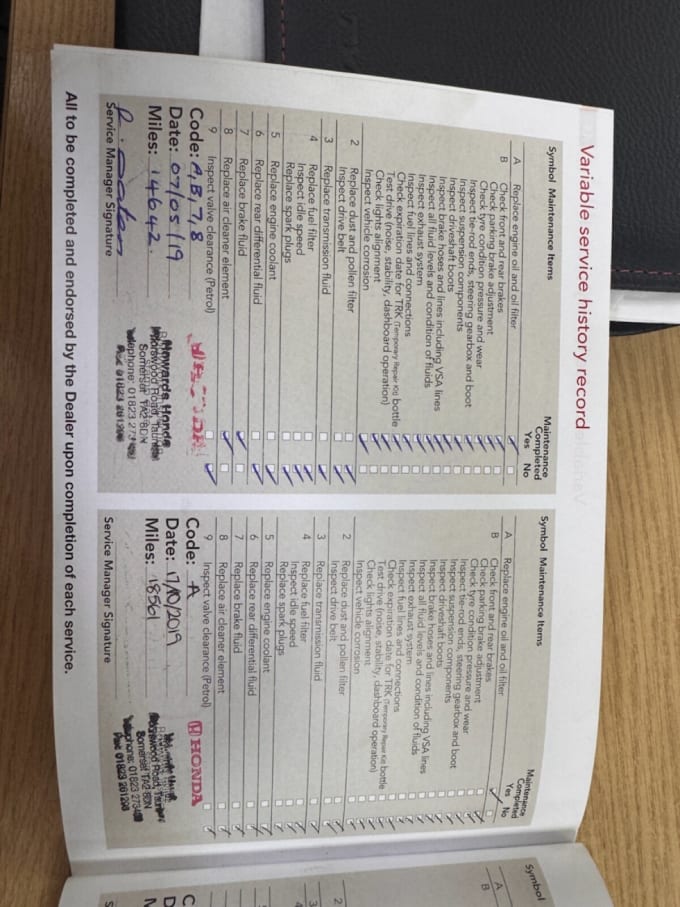 Variable service history record
Symbol Maintenance Items
Maintenance
Completed
Yes No
A Replace engine oil and oil filter
B Check front and rear brakes
Check parking brake adjustment
Check tyre condition pressure and wear
Inspect tie-rod ends, steering gearbox and boot
Inspect suspension components
Inspect driveshaft boots
Inspect brake hoses and lines including VSA lines
Inspect all fluid levels and condition of fluids
Inspect exhaust system
Inspect fuel lines and connections
Check expiration date for TRK (Temporary Repair Kit) bottle
Test drive (noise, stability, dashboard operation)
Check lights alignment
Inspect vehicle corrosion
2 Replace dust and pollen filter
Inspect drive belt
3 Replace transmission fluid
4 Replace fuel filter
Inspect idle speed
Replace spark plugs
5 Replace engine coolant
6 Replace rear differential fluid
7 Replace brake fluid
8 Replace air cleaner element
9 Inspect valve clearance (Petrol)
Code: A, B, 7, 8
Date: 07/05/19
Miles: 14642
Service Manager Signature
HONDA
Howards Honda
Somerset TA2 8DN
Telephone: 01823
Symbol Maintenance Items
Maintenance
Completed
Yes No
A Replace engine oil and oil filter
B Check front and rear brakes
Check parking brake adjustment
Check tyre condition pressure and wear
Inspect tie-rod ends, steering gearbox and boot
Inspect suspension components
Inspect driveshaft boots
Inspect brake hoses and lines including VSA lines
Inspect all fluid levels and condition of fluids
Inspect exhaust system
Inspect fuel lines and connections
Check expiration date for TRK (Temporary Repair Kit) bottle
Test drive (noise, stability, dashboard operation)
Check lights alignment
Inspect vehicle corrosion
2 Replace dust and pollen filter
Inspect drive belt
3 Replace transmission fluid
4 Replace fuel filter
Inspect idle speed
Replace spark plugs
5 Replace engine coolant
6 Replace rear differential fluid
7 Replace brake fluid
8 Replace air cleaner element
9 Inspect valve clearance (Petrol)
Code: A
Date: 17/10/2019
Miles: 18561
Service Manager Signature
HONDA
Somerset TA2 8DN
Telephone: 01823
Symbol
A
B
2
3
4
All to be completed and endorsed by the Dealer upon completion of each service.